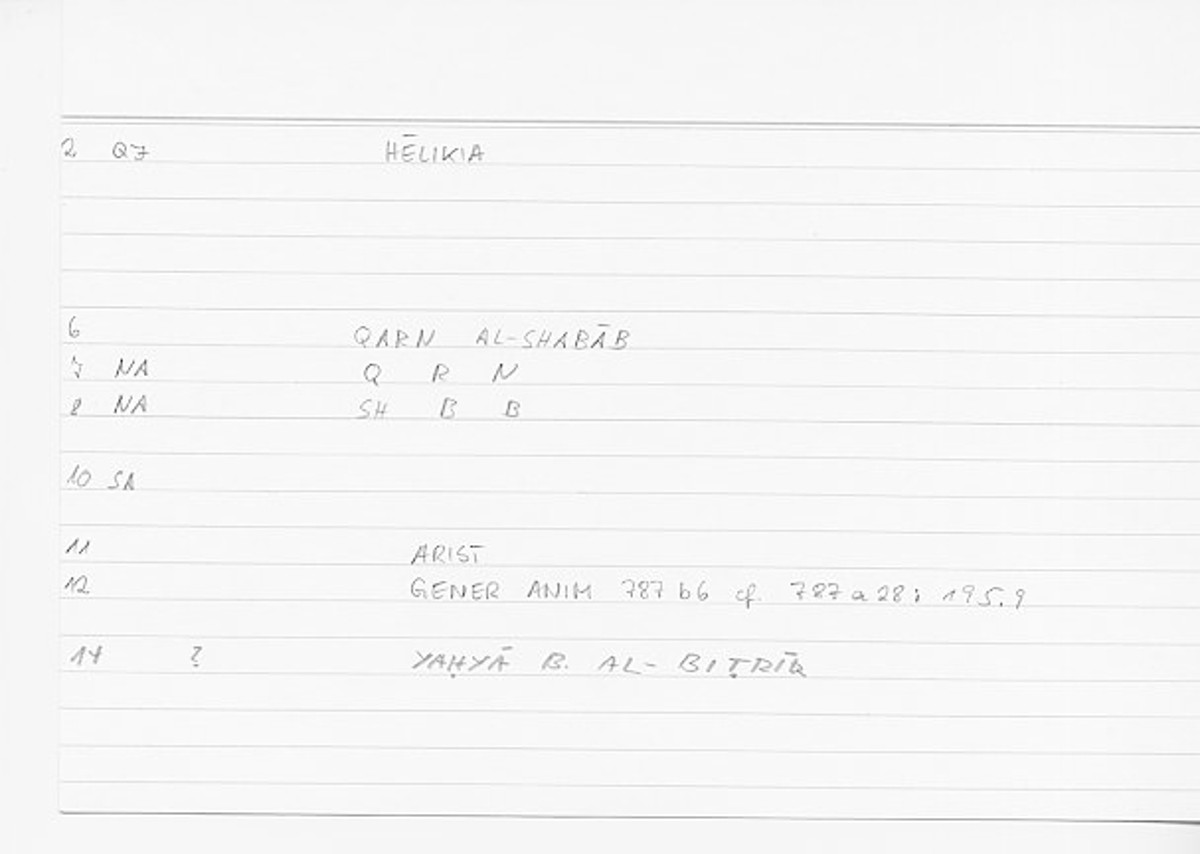 2 QF HĒLIKIA
6 QARN AL-SHABĀB
7 NA Q R N
8 NA SH B B
10 SA
11 ARIST
12 GENER ANIM 787 b6 cf. 787 a 28; 195.9
14 ? YAḤYĀ B. AL-BIṬRĪQ